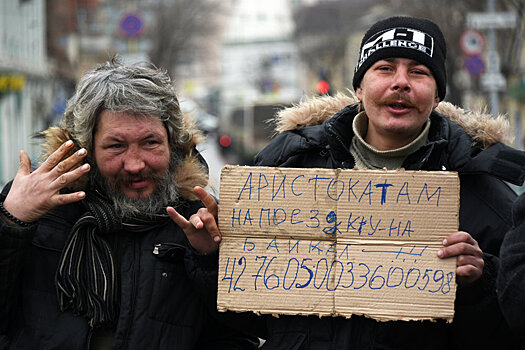 CHALLENGE
АРИСТОКАТАМ
НА ПОЕЗДКУ-НА
4276050033600598